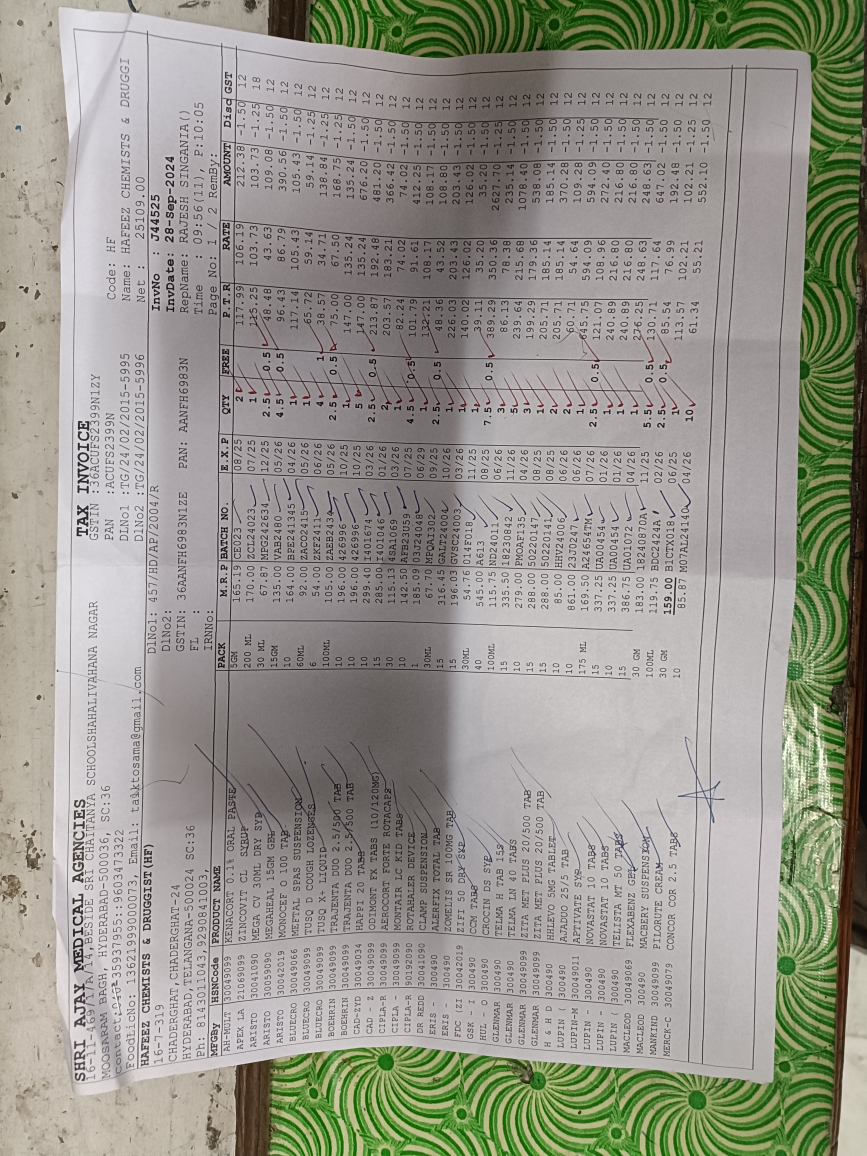 SHRI AJAY MEDICAL AGENCIES
16-11-469/1/A/14,BESIDE SRI CHAITANYA SCHOOLSHAHALIVAHANA NAGAR
MOOSARAM BAGH, HYDERABAD-500036, SC:36
FoodlicNo: 13621999000073, Email: talktosama@gmail.com
TAX INVOICE
GSTIN :36ACUFS2399N1ZY
PAN :ACUFS2399N
DlNo1 :TG/24/02/2015-5995
DlNo2 :TG/24/02/2015-5996
Code: HF
Name: HAFEEZ CHEMISTS & DRUGGI
Net : 25109.00
HAFEEZ CHEMISTS & DRUGGIST (HF)
16-7-319
CHADERGHAT,CHADERGHAT-24
HYDERABAD,TELANGANA-500024 SC:36
Ph: 8143011043,9290841003,
DlNo1: 457/HD/AP/2004/R
DlNo2:
GSTIN: 36AANFH6983N1ZE PAN: AANFH6983N
FL :
IRNNo:
InvNo : J44525
InvDate: 28-Sep-2024
RepName: RAJESH SINGANIA()
Time : 09:56(11), P:10:05
Page No: 1 / 2 RemBy:
MFGBy HSNCode PRODUCT NAME PACK M.R.P BATCH NO. E.X.P QTY FREE P.T.R RATE AMOUNT Disc GST
AH-MULT 30049099 KENACORT 0.1% ORAL PASTE 5GM 165.19 CE023 08/25 2 117.99 106.19 212.38 -1.50 12
APEX LA 21069099 ZINCOVIT CL SYRUP 200 ML 170.00 ZCL24023 07/25 1 103.73 103.73 -1.25 18
ARISTO 30041090 MEGA CV 30ML DRY SYP 30 ML 67.87 MPG242654 12/25 2.5 0.5 48.48 43.63 109.08 -1.50 12
ARISTO 30059090 MEGAHEAL 15GM GEL 15GM 135.00 VAB2480 05/26 4.5 0.5 96.43 86.79 390.56 -1.50 12
ARISTO 30042019 MONOCEF O 100 TAB 10 164.00 BPE241345 04/26 1 117.14 105.43 105.43 -1.50 12
BLUECRO 30049066 MEFTAL SPAS SUSPENSION 60ML 92.00 ZACO2415 05/26 1 65.72 59.14 59.14 -1.25 12
BLUECRO 30049099 TUSQ D COUGH LOZENGES 6 54.00 ZKF2411 06/26 4 1 38.57 34.71 138.84 -1.25 12
BLUECRO 30049099 TUSQ X+ LIQUID 100ML 105.00 ZAEB2434 05/26 2.5 0.5 75.00 67.50 168.75 -1.25 12
BOEHRIN 30049099 TRAJENTA DUO 2.5/500 TAB 10 196.00 426996 10/25 1 147.00 135.24 135.24 -1.50 12
BOEHRIN 30049099 TRAJENTA DUO 2.5/500 TAB 10 196.00 426996 10/25 5 147.00 135.24 676.20 -1.50 12
CAD-ZYD 30049034 HAPPI 20 TABS 15 299.40 I401674 03/26 2.5 0.5 213.87 192.48 481.20 -1.50 12
CAD - Z 30049099 ODIMONT FX TABS (10/120MG) 10 285.03 I401046 01/26 2 203.57 183.21 366.42 -1.50 12
CIPLA-R 30049099 AEROCORT FORTE ROTACAPS 30 115.13 4SA1069 03/26 1 82.24 74.02 74.02 -1.50 12
CIPLA - 30049099 MONTAIR LC KID TABS 10 142.50 AFB23059 07/25 4.5 0.5 101.79 91.61 412.25 -1.50 12
CIPLA-R 90192090 ROTAHALER DEVICE 1 185.09 03J24048 06/29 1 132.21 108.17 108.17 -1.50 12
DR REDD 30041090 CLAMP SUSPENSION 30ML 67.70 MFQAI302 09/25 2.5 0.5 48.36 43.52 108.80 -1.50 12
ERIS - 300490 ALERFIX TOTAL TAB 15 316.45 GALT24004 10/26 1 226.03 203.43 203.43 -1.50 12
ERIS - 300490 ZOMELIS SR 100MG TAB 15 196.03 GVSC24003 03/26 1 140.02 126.02 126.02 -1.50 12
FDC (ZI 30042019 ZIFI 50 DRY SYP 30ML 54.76 014F018 11/25 1 39.11 35.20 35.20 -1.50 12
GSK - I 300490 CCM TABS 40 545.00 A613 08/25 7.5 0.5 389.29 350.36 2627.70 -1.50 12
HUL - O 300490 CROCIN DS SYP 100ML 115.75 ND24011 06/26 3 86.13 78.38 235.14 -1.50 12
GLENMAR 300490 TELMA H TAB 15S 15 335.50 18230842 11/26 5 239.64 215.68 1078.40 -1.50 12
GLENMAR 300490 TELMA LN 40 TABS 10 279.00 PMOAF135 04/26 3 199.29 179.36 538.08 -1.50 12
GLENMAR 30049099 ZITA MET PLUS 20/500 TAB 15 288.00 50220147 08/25 1 205.71 185.14 185.14 -1.50 12
GLENMAR 30049099 ZITA MET PLUS 20/500 TAB 15 288.00 50220141 08/25 2 205.71 185.14 370.28 -1.50 12
H & H D 300490 HHLEVO 5MG TABLET 10 85.00 HHV24006 06/26 2 60.71 54.64 109.28 -1.25 12
LUPIN ( 300490 AJADUO 25/5 TAB 10 861.00 23J0247 06/26 1 645.75 594.09 594.09 -1.50 12
LUPIN-M 30049011 APTIVATE SYP 175 ML 169.50 A246547M 07/26 2.5 0.5 121.07 108.96 272.40 -1.25 12
LUPIN - 300490 NOVASTAT 10 TABS 15 337.25 UA00454A 01/26 1 240.89 216.80 216.80 -1.50 12
LUPIN - 300490 NOVASTAT 10 TABS 10 337.25 UA00454A 01/26 1 240.89 216.80 216.80 -1.50 12
LUPIN ( 300490 TELISTA MT 50 TABS 15 386.75 UA01D072 04/26 1 276.25 248.63 248.63 -1.50 12
MACLEOD 30049069 FLEXABENZ GEL 30 GM 183.00 18240870A 11/25 5.5 0.5 130.71 117.64 647.02 -1.50 12
MACLEOD 300490 MACBERY SUSPENSION 100ML 119.75 BDC2424A 02/26 2.5 0.5 85.54 76.99 192.48 -1.50 12
MANKIND 30049099 PILORUTE CREAM 30 GM 159.00 B1CTX018 06/25 1 113.57 102.21 102.21 -1.25 12
MERCK-C 30049079 CONCOR COR 2.5 TABS 10 85.87 M07AL24140 04/26 10 61.34 55.21 552.10 -1.50 12